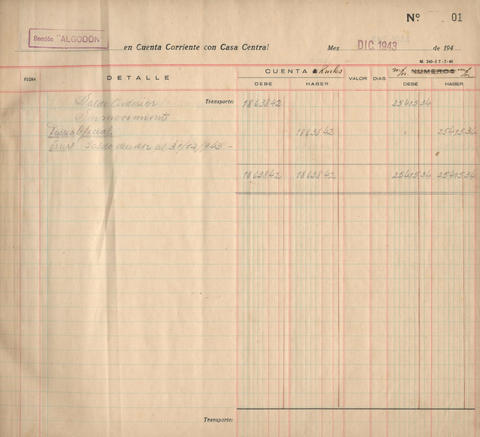 Nº 01
Sección "ALGODÓN" en Cuenta Corriente con Casa Central Mes DIC 1943 de 194
M. 240-I T-7-40
FECHA DETALLE CUENTA VALOR DIAS m/n NUMEROS m/n
DEBE HABER DEBE HABER
Saldo Anterior Transporte: 1863842 2541534
1863842 2541534
Saldo deudor al 31/12/943.-
1863842 1863842 2541534 2541534
Transporte: